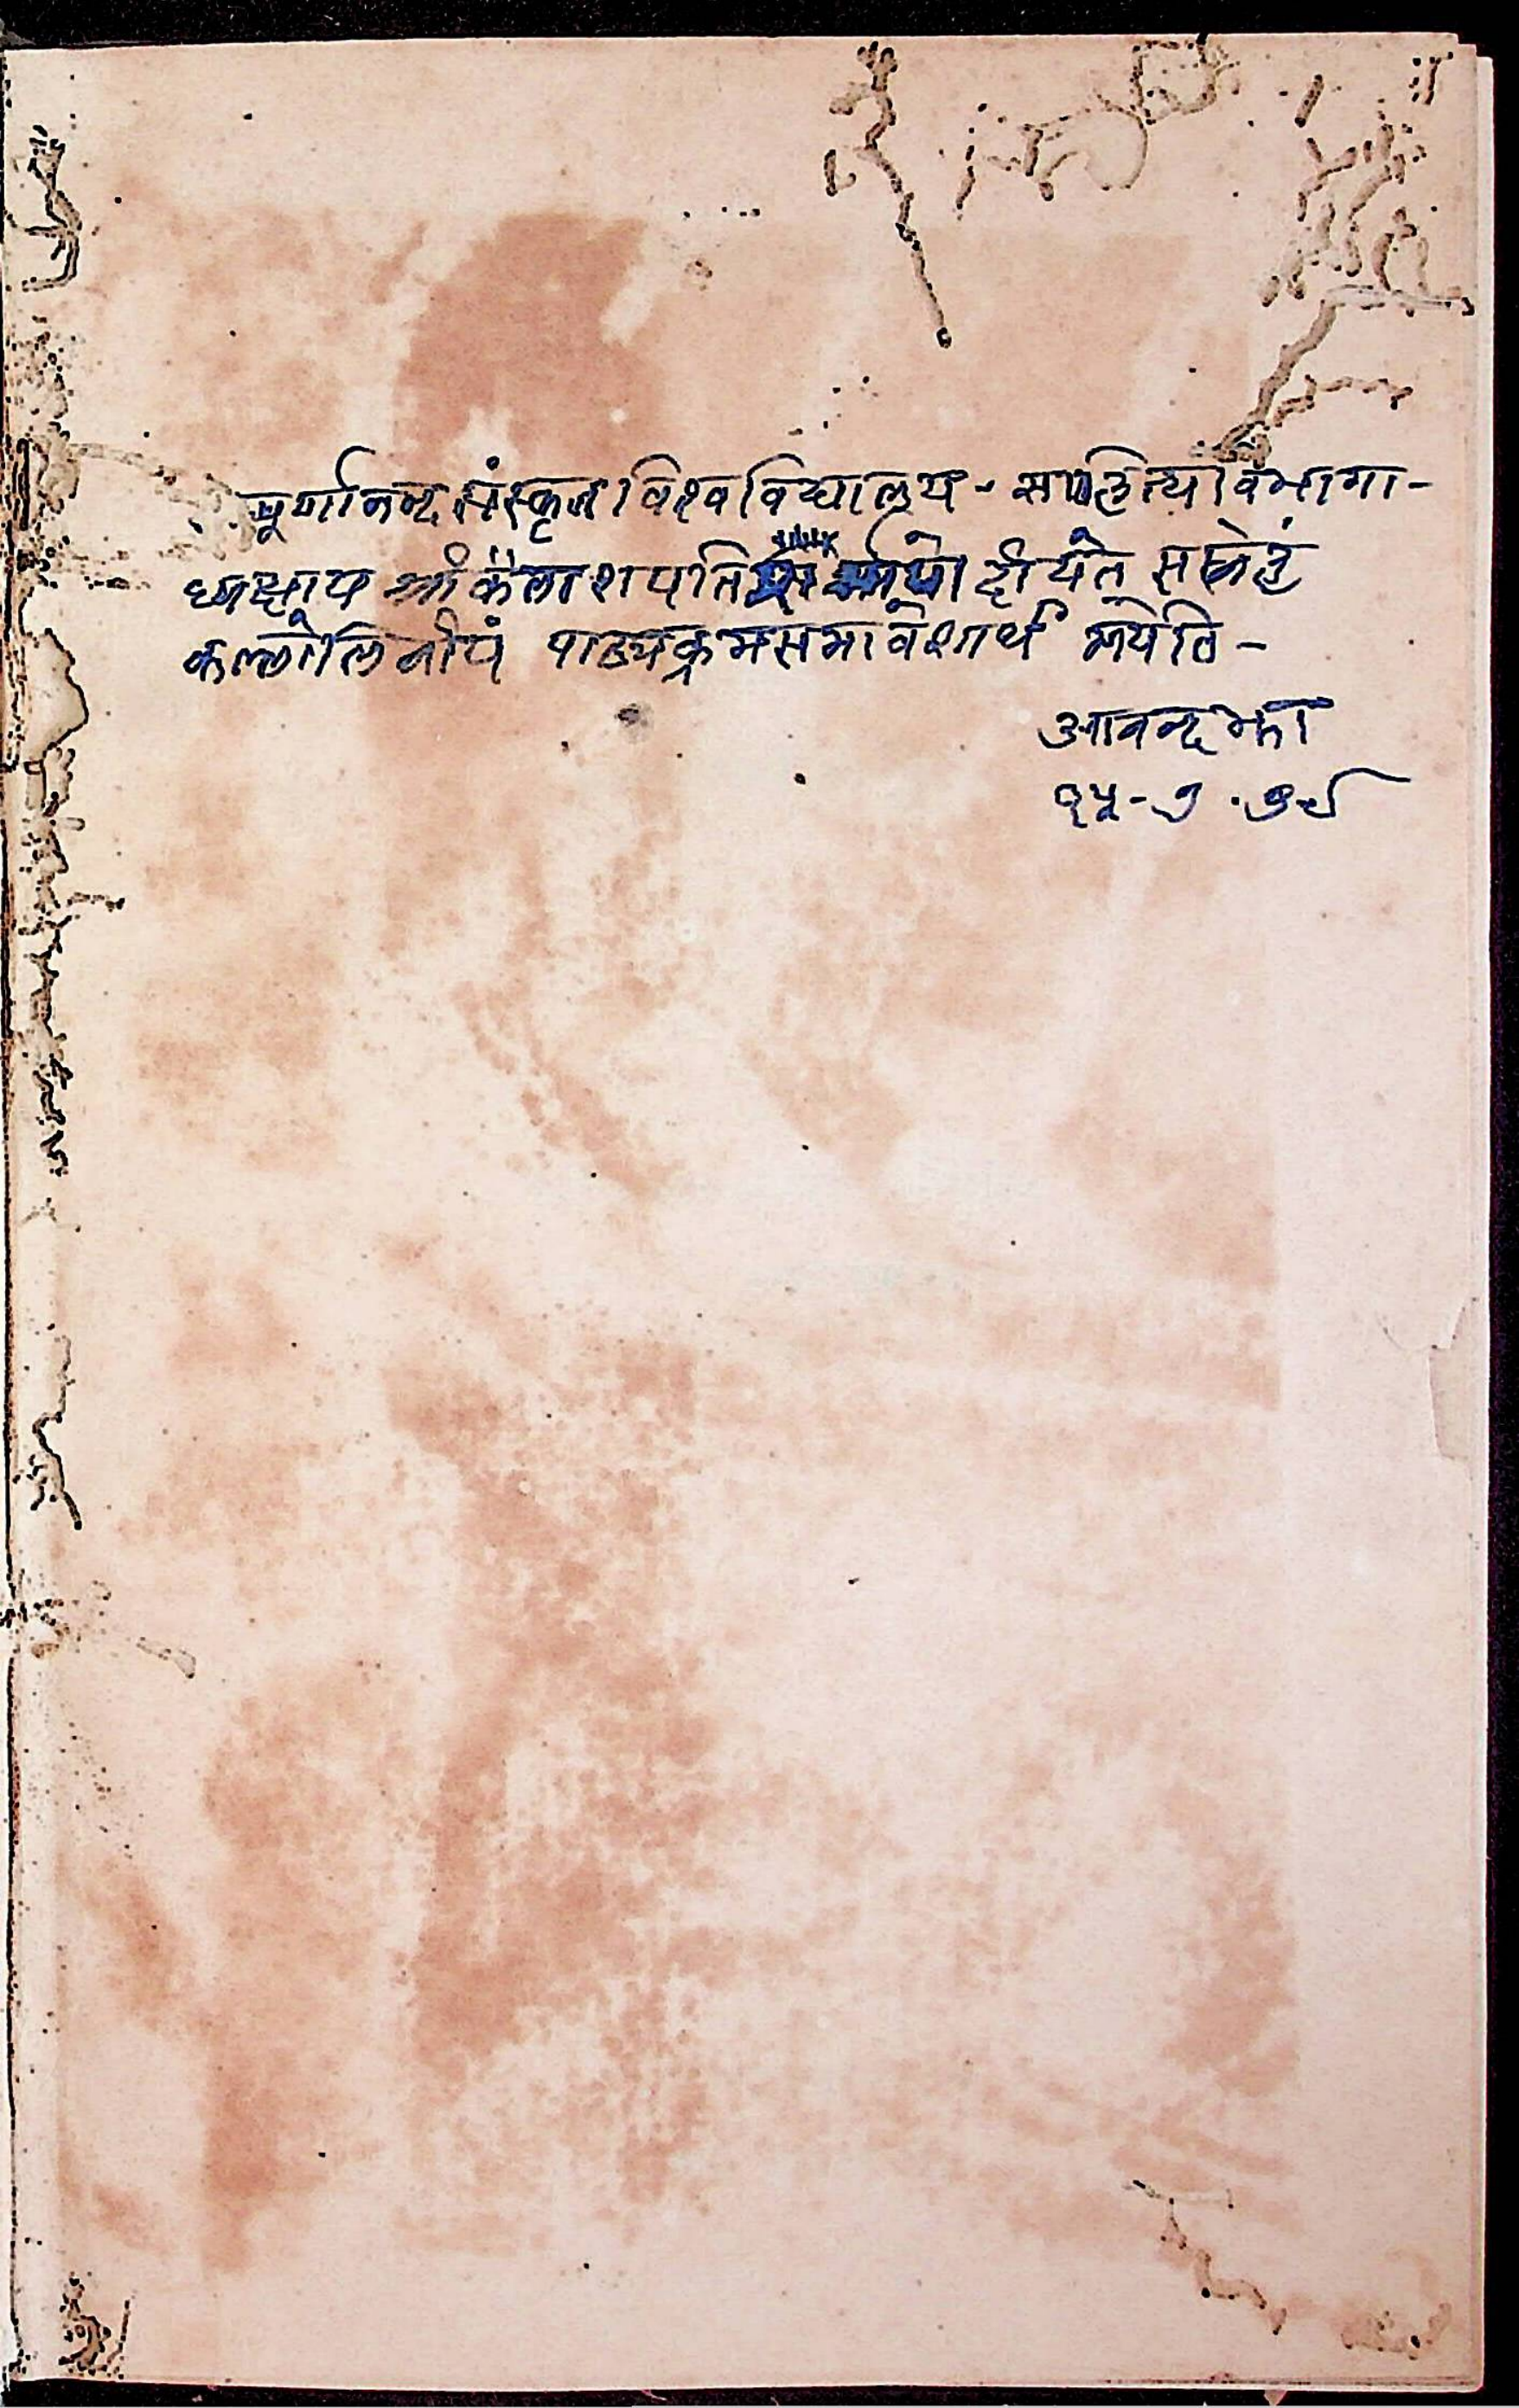 पूर्णानन्द संस्कृत विश्वविद्यालय - साहित्यविभागा-
ध्यक्षाय श्री कैलाशपति दीयते सस्नेहं
कल्लोलिनीयं पाठ्यक्रमसमावेशार्थं मयेति -
आनन्द झा
१५-७.७९